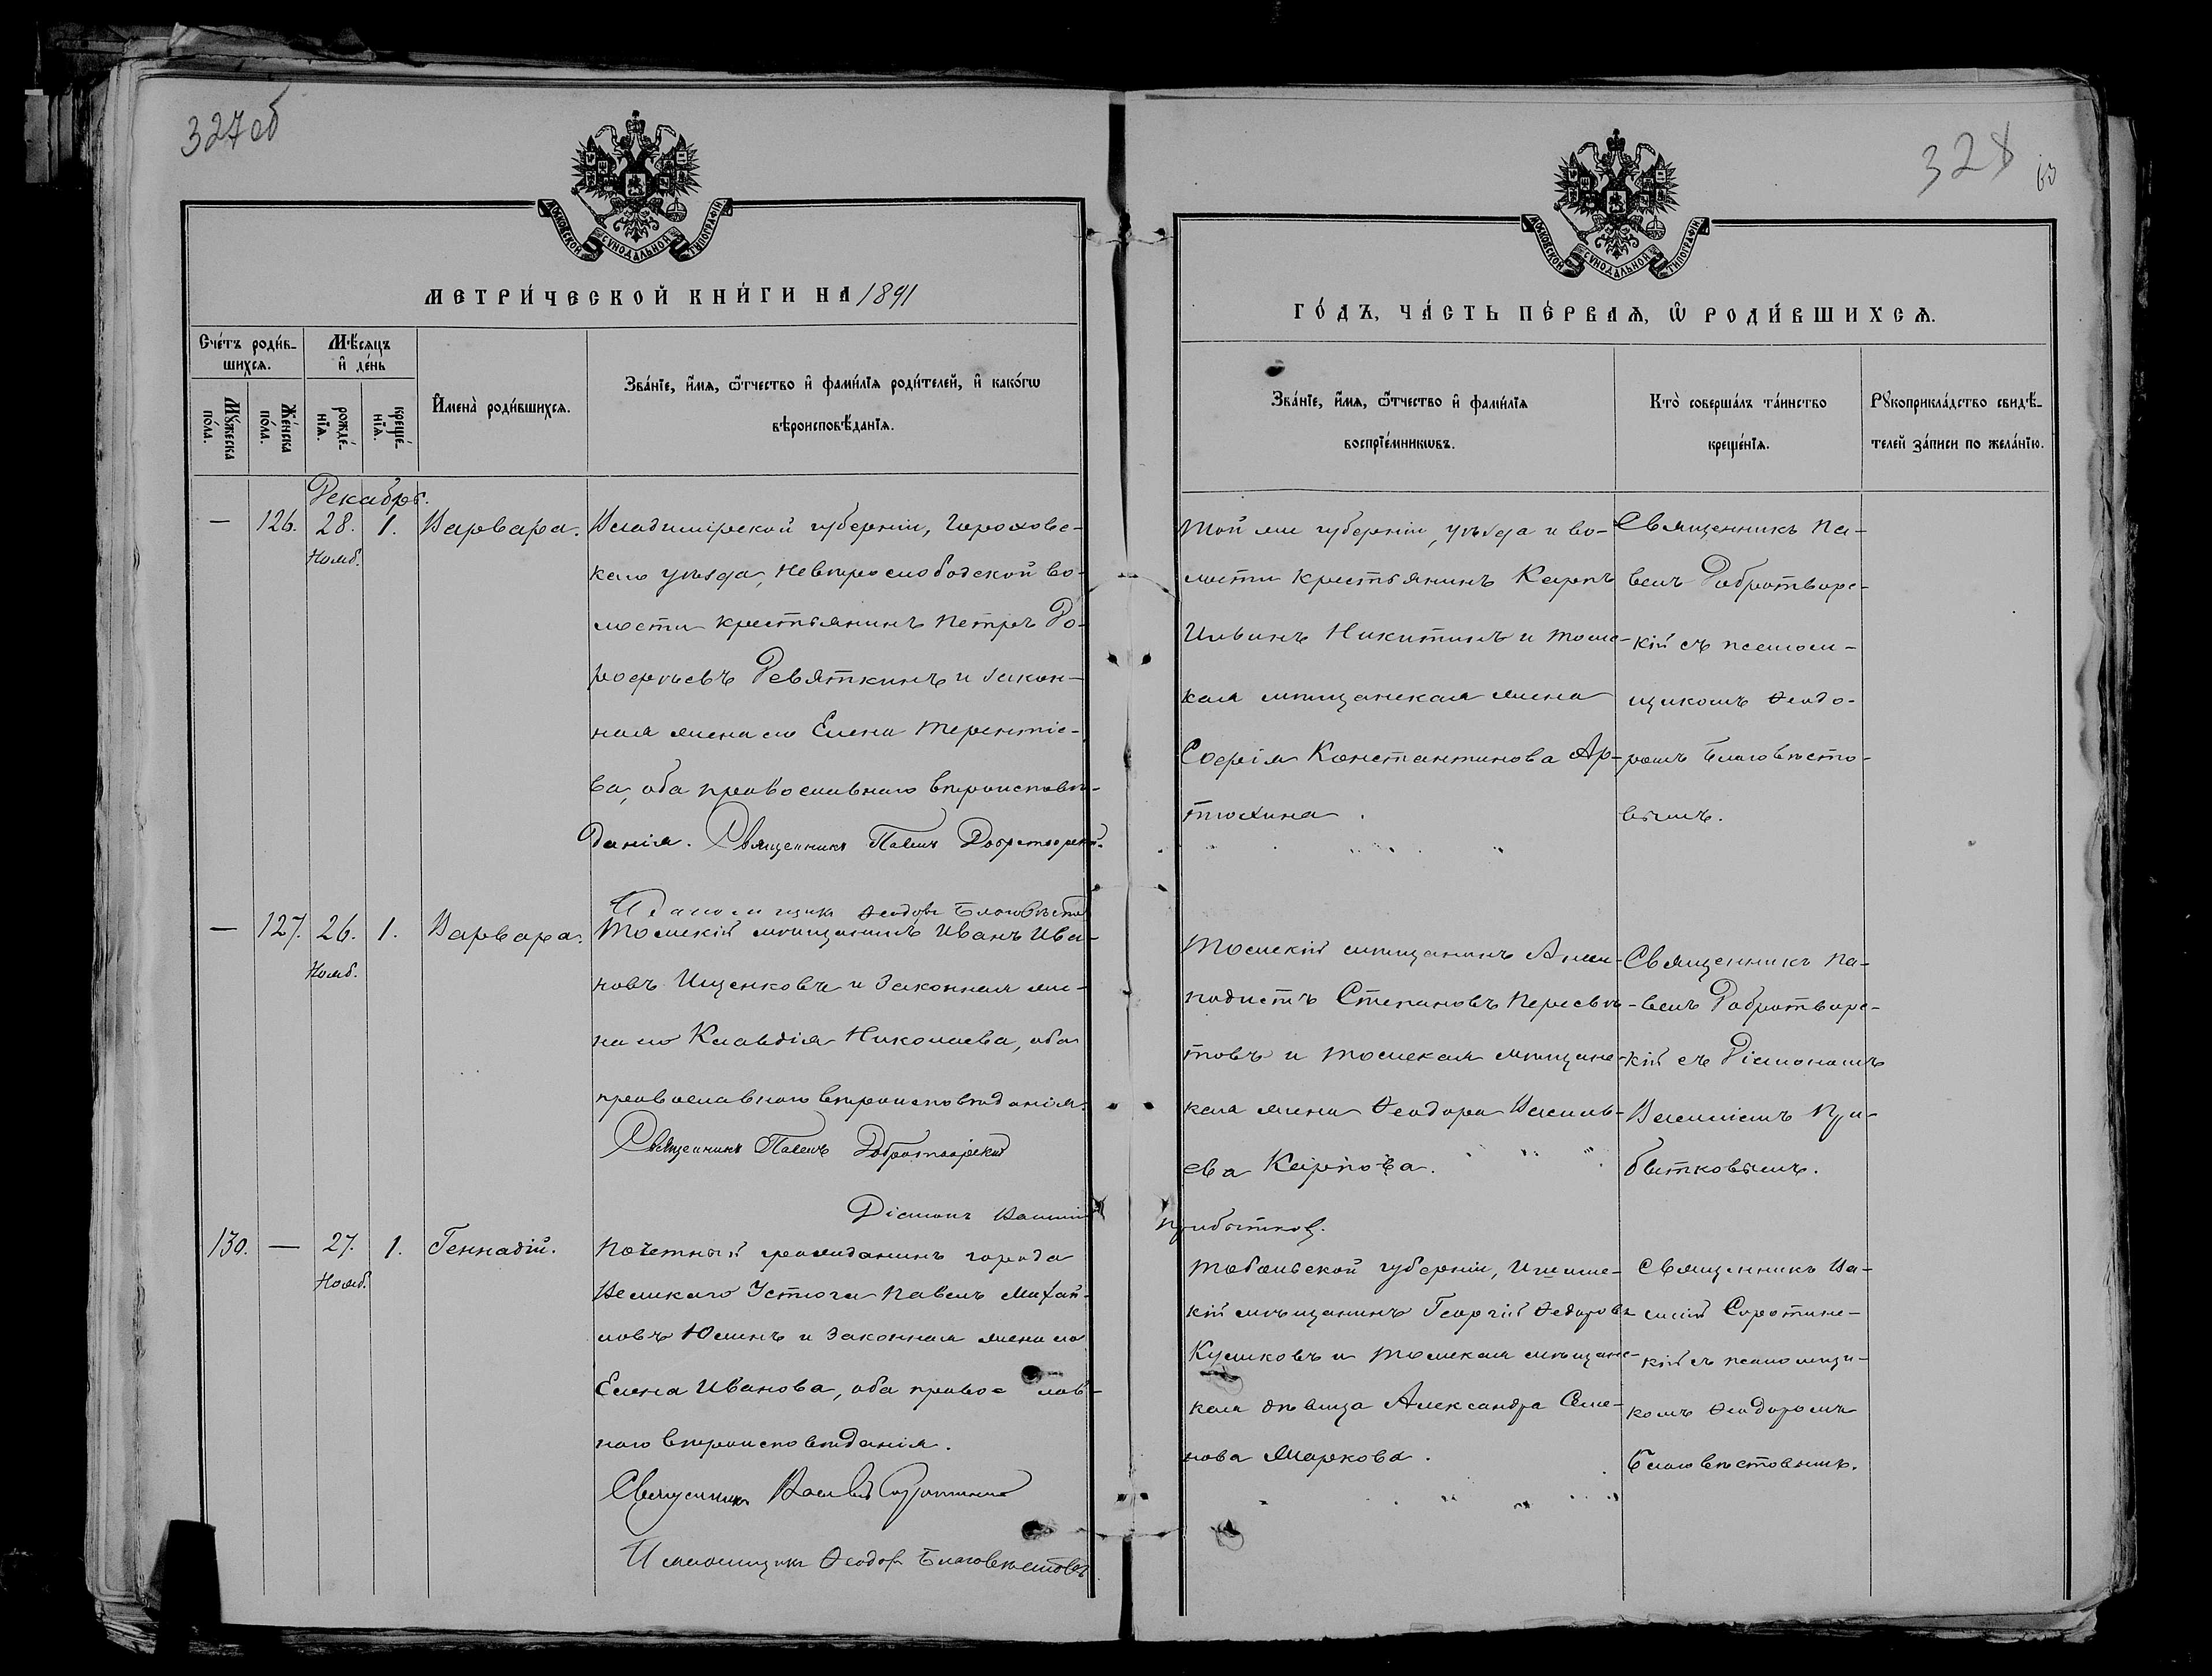 327 об
МОСКОВСКОЙ СѴНОДАЛЬНОЙ ТИПОГРАФІИ
МЕТРИ́ЧЕСКОЙ КНИ́ГИ НА 1891
Сче́тъ роди́в-
шихся.
Мѣ́сяцъ
и҆ де́нь
Мꙋ́жеска
по́ла.
Же́нска
по́ла.
рожде́-
нїя.
креще́-
нїя.
И҆мена̀ роди́вшихся.
Зва́нїе, и҆́мя, ѻ҆́тчество и҆ фами́лїя роди́телей, и҆ како́гѡ
вѣроисповѣ́данїя.
Декабрь.
— 126. 28. 1. Варвара.
Нояб.
Владимірской губерніи, Гороховс-
каго уѣзда, Нев слободской во-
лости крестьянинъ Петръ До-
рофѣевъ Девяткинъ и закон-
ная жена его Елена Терентіе-
ва, оба православнаго вѣроисповѣ-
данія. Священникъ Павелъ Добротворскій.
Псаломщикъ Ѳеодоръ Благовѣсто
— 127. 26. 1. Варвара.
Нояб.
Томскій мѣщанинъ Иванъ Ива-
новъ Ищенковъ и законная же-
на его Клавдія Николаева, оба
православнаго вѣроисповѣданія.
Священникъ Павелъ Добротворскій
Діаконъ Василій Прибытков.
130. — 27. 1. Геннадій.
Нояб.
Почетный гражданинъ города
Великаго Устюга Павелъ Михай-
ловъ Юминъ и законная жена его
Елена Иванова, оба православ-
наго вѣроисповѣданія.
Священникъ Василій Сиротинскій
Псаломщикъ Ѳеодоръ Благовѣстовъ
328
МОСКОВСКОЙ СѴНОДАЛЬНОЙ ТИПОГРАФІИ
ГО́ДЪ, ЧА́СТЬ ПЕ́РВАѦ, Ѡ҆ РОДИ́ВШИХСѦ.
Зва́нїе, и҆́мя, ѻ҆́тчество и҆ фами́лїя
воспрїе́мникѡвъ.
Кто̀ соверша́лъ та́инство
креще́нїя.
Рꙋкоприкла́дство свидѣ́-
телей за́писи по жела́нїю.
Той же губерніи, уѣзда и во-
лости крестьянинъ Карпъ
Ильинъ Никитинъ и томс-
кая мѣщанская жена
Софія Константинова Ар-
тюхина.
Священникъ Па-
велъ Добротворс-
кій съ псалом-
щикомъ Ѳеодо-
ромъ Благовѣсто-
вымъ.
Томскій мѣщанинъ Анем-
подистъ Степановъ Пересвѣ-
товъ и томская мѣщанс-
кая жена Ѳеодора Василь-
ева Карпова.
Священникъ Па-
велъ Добротворс-
кій съ Діакономъ
Василіемъ При-
бытковымъ.
Тобольской губерніи, Ишимс-
кій мѣщанинъ Георгій Ѳедоровъ
Кушковъ и томская мѣщанс-
кая дѣвица Александра Семе-
нова Маркова.
Священникъ Ва-
силій Сиротинс-
кій съ псаломщи-
комъ Ѳеодоромъ
Благовѣстовымъ.